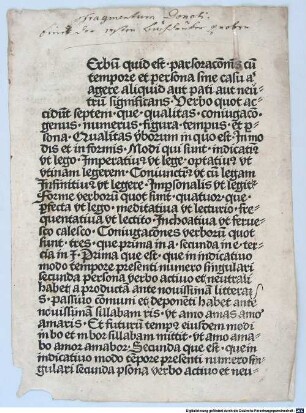 fragmentum Donati
Erbũ quid est · pars oracõnis cũ
tempore et persona sine casu a
agere aliquid aut pati aut neu
trũ significans · Verbo quot ac
cidũt septem · que · qualitas · coniugacõ
genus · numerus · figura · tempus · et p
sona · Qualitas vborum in quo est · In mo
dis et in formis · Modi qui sunt · indicatiꝰ
vt lego · Imperatiuꝰ vt lege · optatiuꝰ vt
vtinam legerem · Coniunctiuꝰ vt cũ legam
Infinitiuꝰ vt legere · Impsonalis vt legit
Forme verborũ quot sunt · quatuor · que
pfecta vt lego · meditatiua vt lecturio · fre
quentatiua vt lectito · Inchoatiua vt ferue
sco calesco · Coniugacõnes verborũ quot
sunt · tres · que prima in a · secunda in e · ter
cia in i · Prima que est · que in indicatiuo
modo tempore presenti numero singulari
secunda persona verbo actiuo et neutrali
habet a producta ante nouissimã litterã
s · passiuo cõmuni et deponeti habet ante
nouissimã sillabam ris · vt amo amas amo
amaris · Et futurũ tempꝰ eiusdem modi
in bo et in bor sillabam mittit · vt amo ama
bo amor amabor · Secunda que est · que in
indicatiuo modo tẽpore presenti numero sin
gulari secunda psona verbo actiuo et neu ·